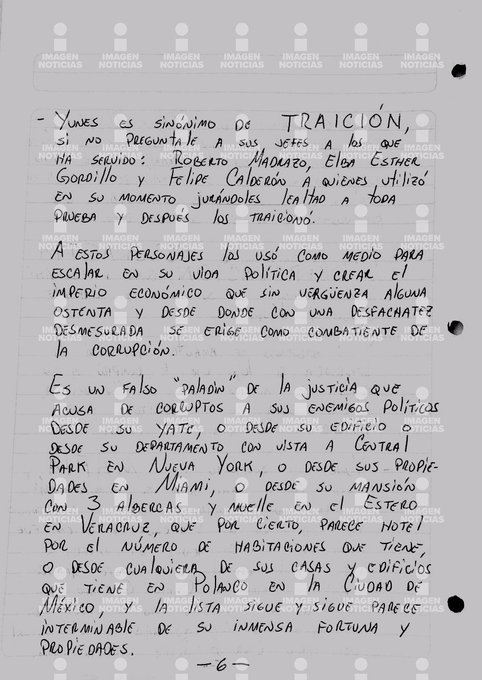 - YUNES ES SINÓNIMO DE TRAICIÓN,
SI NO PREGUNTALE A SUS JEFES A LOS QUE
HA SERVIDO: ROBERTO MADRAZO, ELBA ESTHER
GORDILLO Y FELIPE CALDERÓN A QUIENES UTILIZÓ
EN SU MOMENTO JURÁNDOLES LEALTAD A TODA
PRUEBA Y DESPUÉS LOS TRAICIONÓ.
A ESTOS PERSONAJES LOS USÓ COMO MEDIO PARA
ESCALAR EN SU VIDA POLÍTICA Y CREAR EL
IMPERIO ECONÓMICO QUE SIN VERGÜENZA ALGUNA
OSTENTA Y DESDE DONDE CON UNA DESFACHATEZ
DESMESURADA SE ERIGE COMO COMBATIENTE DE
LA CORRUPCIÓN.
ES UN FALSO "PALADÍN" DE LA JUSTICIA QUE
ACUSA DE CORRUPTOS A SUS ENEMIGOS POLÍTICOS
DESDE SU YATE, O DESDE SU EDIFICIO O
DESDE SU DEPARTAMENTO CON VISTA A CENTRAL
PARK EN NUEVA YORK, O DESDE SUS PROPIE-
DADES EN MIAMI, O DESDE SU MANSIÓN
CON 3 ALBERCAS Y MUELLE EN EL ESTERO
EN VERACRUZ, QUE POR CIERTO, PARECE HOTEL
POR EL NÚMERO DE HABITACIONES QUE TIENE,
O DESDE CUALQUIERA DE SUS CASAS Y EDIFICIOS
QUE TIENE EN POLANCO EN LA CIUDAD DE
MÉXICO, Y LA LISTA SIGUE Y SIGUE PARECE
INTERMINABLE DE SU INMENSA FORTUNA Y
PROPIEDADES.
- 6 -
IMAGEN
NOTICIAS